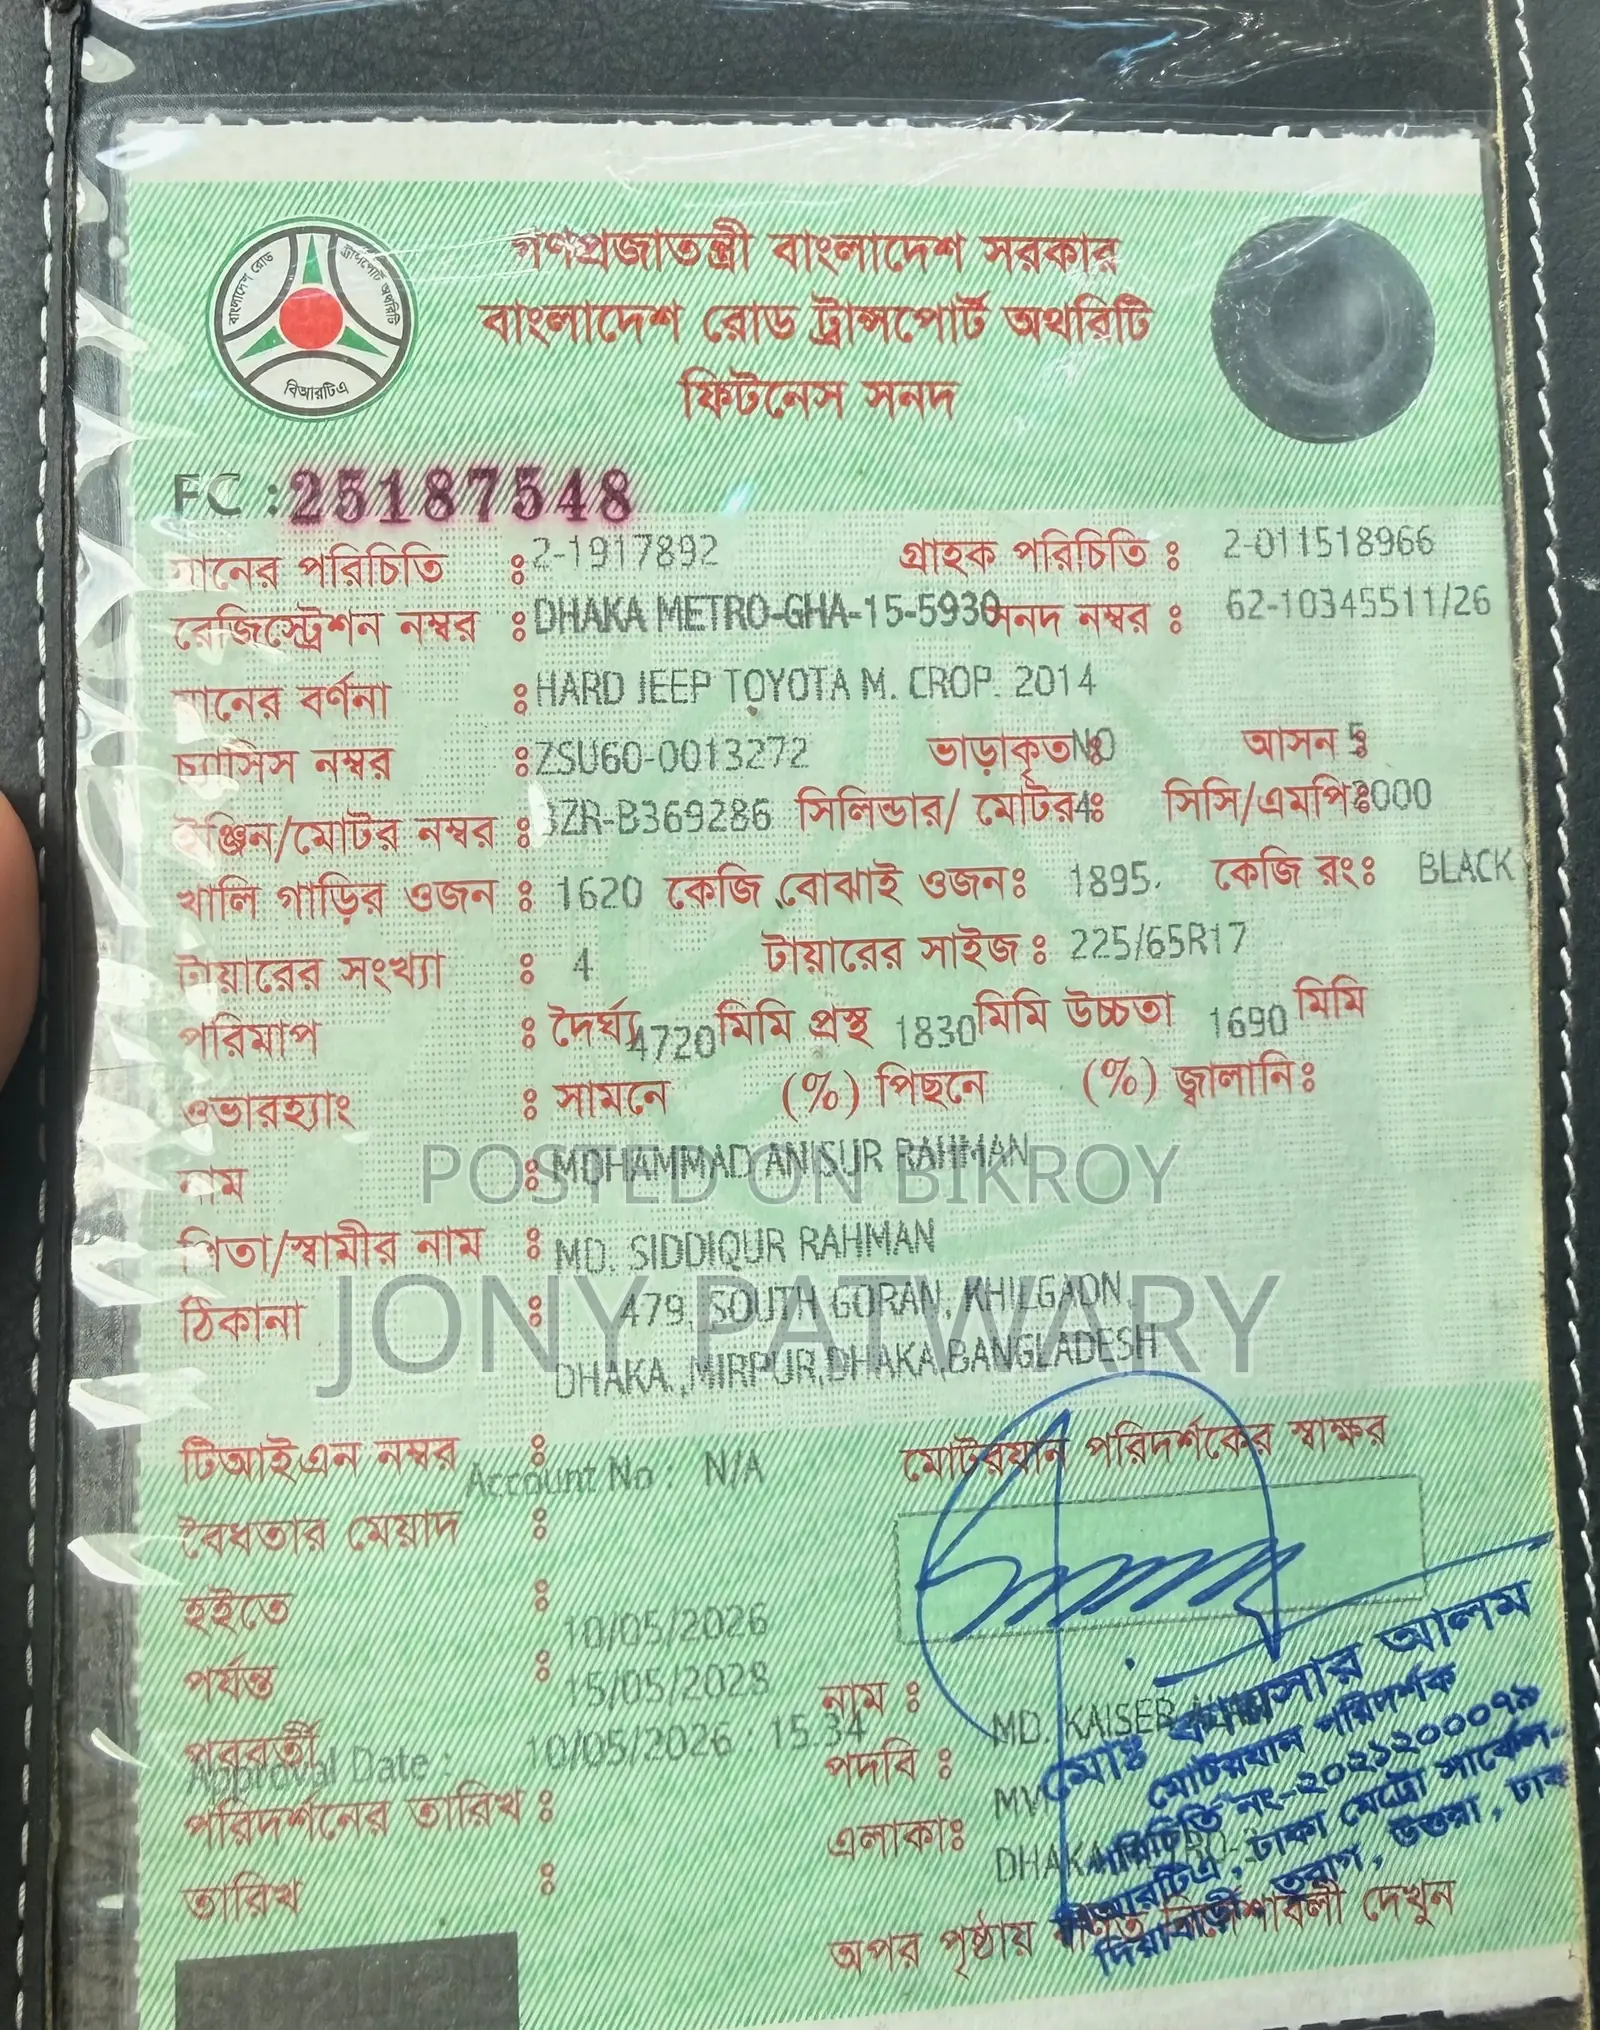 গণপ্রজাতন্ত্রী বাংলাদেশ সরকার
বাংলাদেশ রোড ট্রান্সপোর্ট অথরিটি
ফিটনেস সনদ
বাংলাদেশ রোড ট্রান্সপোর্ট অথরিটি
বিআরটিএ
FC : 25187548
যানের পরিচিতি : 2-1917892 গ্রাহক পরিচিতি : 2-011518966
রেজিস্ট্রেশন নম্বর : DHAKA METRO-GHA-15-5930 সনদ নম্বর : 62-10345511/26
যানের বর্ণনা : HARD JEEP TOYOTA M. CROP. 2014
চ্যাসিস নম্বর : ZSU60-0013272 ভাড়াকৃত : NO আসন : 5
ইঞ্জিন/মোটর নম্বর : 3ZR-B369286 সিলিন্ডার/ মোটর : 4 সিসি/এমপি : 2000
খালি গাড়ির ওজন : 1620 কেজি বোঝাই ওজন : 1895. কেজি রং : BLACK
টায়ারের সংখ্যা : 4 টায়ারের সাইজ : 225/65R17
পরিমাপ : দৈর্ঘ্য 4720 মিমি প্রস্থ 1830 মিমি উচ্চতা 1690 মিমি
ওভারহ্যাং : সামনে (%) পিছনে (%) জ্বালানি :
নাম : MOHAMMAD ANISUR RAHMAN
POSTED ON BIKROY
পিতা/স্বামীর নাম : MD. SIDDIQUR RAHMAN
ঠিকানা : 479, SOUTH GORAN, KHILGAON,
JONY PATWARY
DHAKA.,MIRPUR,DHAKA,BANGLADESH
টিআইএন নম্বর : মোটরযান পরিদর্শকের স্বাক্ষর
Account No : N/A
বৈধতার মেয়াদ :
হইতে : 10/05/2026
পর্যন্ত : 15/05/2028
নাম : MD. KAISER
পরবর্তী
Approval Date : 10/05/2026 15:34
পদবি : MVI
পরিদর্শনের তারিখ :
এলাকা : DHAKA METRO-
তারিখ :
অপর পৃষ্ঠায় বর্ণিত নির্দেশাবলী দেখুন
মোঃ কায়সার আলম
মোটরযান পরিদর্শক
পরিচিতি নং-২০২১২০০০৭৯
বিআরটিএ, ঢাকা মেট্রো সার্কেল-
দিয়াবাড়ী, তুরাগ, উত্তরা, ঢাকা